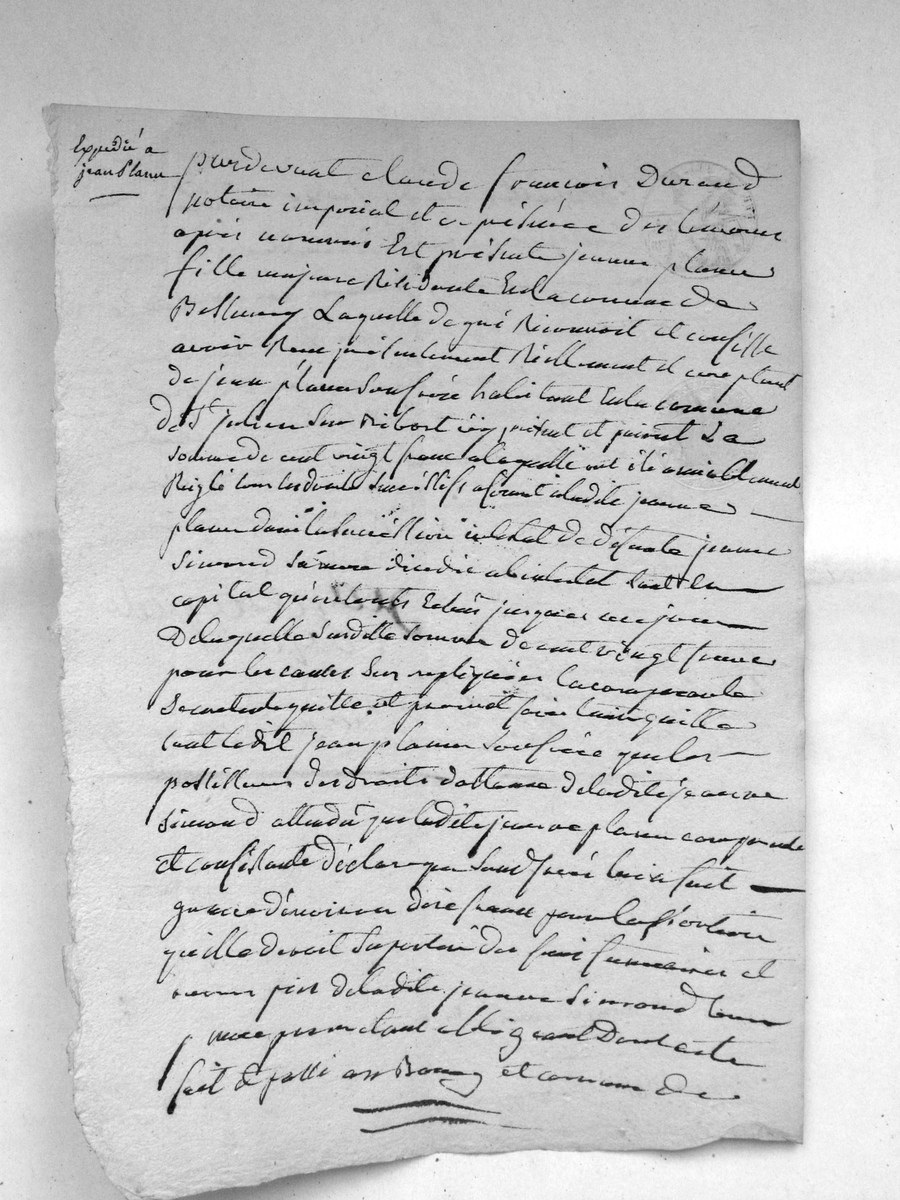 Expedié a
jean Planu
pardevant claude françois Durand
notaire imperial et en présence des témoins
après nommés Est présente jeanne planu
fille majeure Résidente En la comune de
Bellevary Laquelle de gré Reconnoit et confesse
avoir Reçu présentement Réellement et comptant
de jean planu son frère habitant En la comune
De St julien Sur Bibost icy présent et prénant La
somme de cent vingt francs a laquelle ont été amiablement
Reiglé tous les droits succéssifs aférant a ladite jeanne
planu dans la succéssion intestat de défunte jeanne
Simond Sa mere décédée abintestat tant en
capital qu'interets Echus jusques a ce jour
De laquelle Susditte somme de cent vingt francs
pour les causes Sus expliquées la comparante
Se contente quitte et promet faire tenir quitte
tant le dit jean planu Son frère que les
possesseurs des droits d'ottenue de la dite jeanne
Simond attendu que la dite jeanne planu comparante
et confessante déclare que Son frère lui a fait
grace d'environ dix francs pour la portion
qu'elle devoit Suporter des frais funeraires et
de la dite jeanne Simond leur
mere promettant obligeant Dont acte
fait et passé au Bourg et comune de